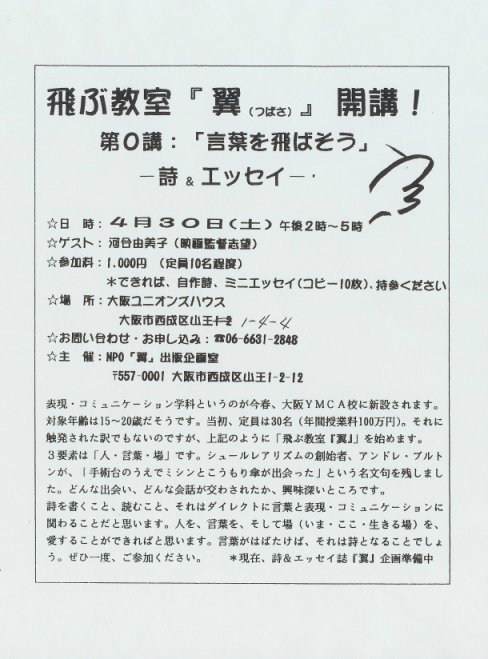 飛ぶ教室『翼(つばさ)』 開講！
第０講：「言葉を飛ばそう」
―詩 & エッセイ―
☆日　時：４月３０日(土) 午後２時～５時
☆ゲスト：河合由美子（映画監督志望）
☆参加料：1,000円　（定員10名程度）
＊できれば、自作詩、ミニエッセイ(コピー10枚)、持参ください
☆場　所：大阪ユニオンズハウス
大阪市西成区山王1-2 1-4-4
☆お問い合わせ・お申し込み：☎06-6631-2848
☆主　催：NPO「翼」出版企画室
〒557-0001 大阪市西成区山王1-2-12
表現・コミュニケーション学科というのが今春、大阪ＹＭＣＡ校に新設されます。
対象年齢は15～20歳だそうです。当初、定員は30名（年間授業料100万円）。それに
触発された訳でもないのですが、上記のように「飛ぶ教室『翼』」を始めます。
３要素は「人・言葉・場」です。シュールレアリズムの創始者、アンドレ・ブルト
ンが、「手術台のうえでミシンとこうもり傘が出会った」という名文句を残しまし
た。どんな出会い、どんな会話が交わされたか、興味深いところです。
詩を書くこと、読むこと、それはダイレクトに言葉と表現・コミュニケーションに
関わることだと思います。人を、言葉を、そして場（いま・ここ・生きる場）を、
愛することができればと思います。言葉がはばたけば、それは詩となることでしょ
う。ぜひ一度、ご参加ください。　＊現在、詩＆エッセイ誌『翼』企画準備中